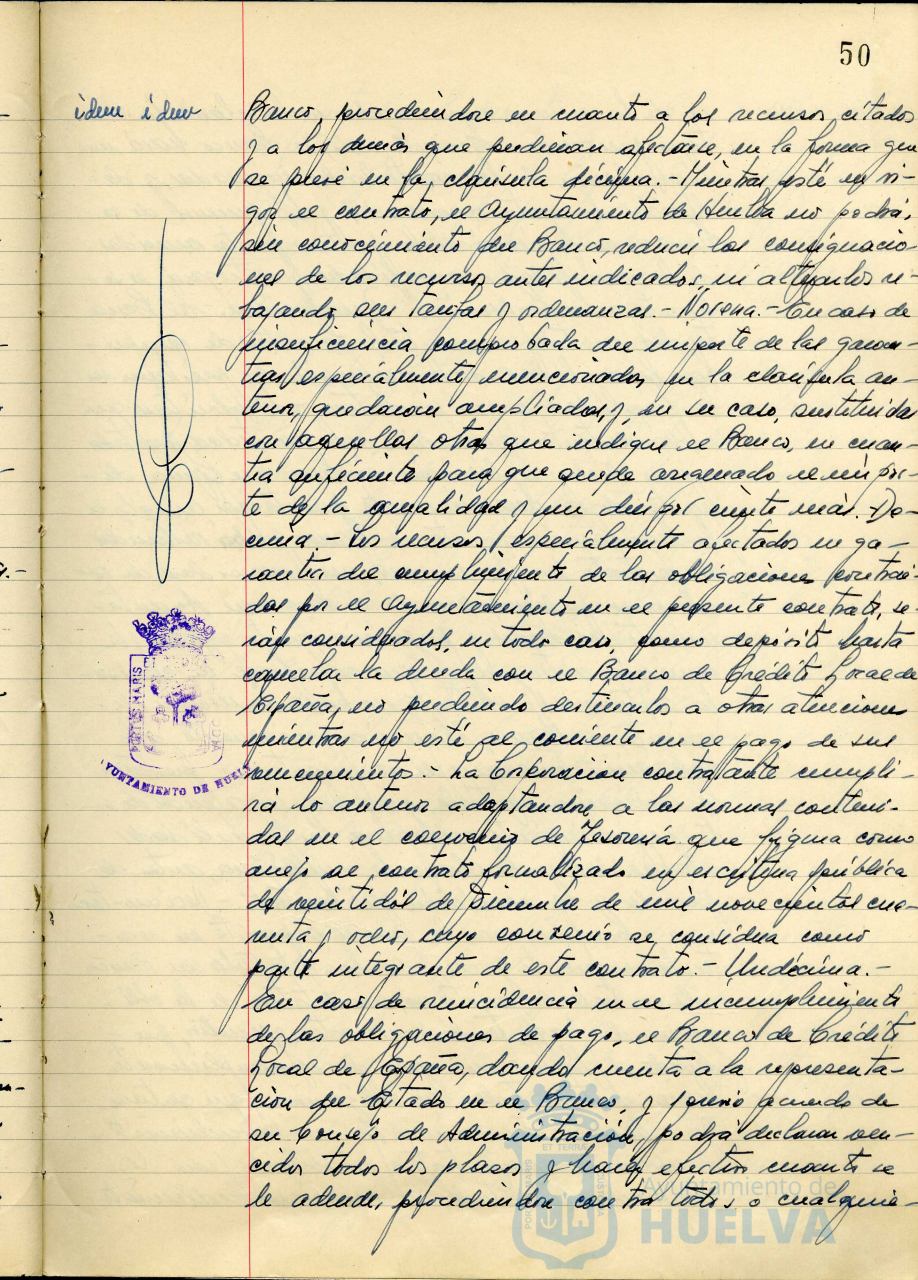 50
idem idem
Banco, procediéndose en cuanto a los recursos citados
y a los demás que pudieran afectarse, en la forma que
se prevé en la cláusula décima.- Mientras esté en vi-
gor el contrato, el Ayuntamiento de Huelva no podrá,
sin conocimiento del Banco, reducir las consignacio-
nes de los recursos antes indicados, ni alterarlos re-
bajando sus tarifas y ordenanzas.- Novena.- En caso de
insuficiencia comprobada del importe de las garan-
tías especialmente mencionadas en la cláusula an-
terior, quedarán ampliadas, y, en su caso, sustituidas
con aquellas otras que indique el Banco, en cuan-
tía suficiente para que quede asegurado el impor-
te de la anualidad y un diez por ciento más.- Dé-
cima.- Los recursos especialmente afectados en ga-
rantía del cumplimiento de las obligaciones contraí-
das por el Ayuntamiento en el presente contrato, se-
rán considerados, en todo caso, como depósito hasta
cancelar la deuda con el Banco de Crédito Local de
España, no pudiendo destinarlos a otras atenciones
mientras no esté al corriente en el pago de sus
vencimientos.- La Corporación contratante cumpli-
rá lo anterior adaptándose a las normas conteni-
das en el convenio de Tesorería que figura como
anejo al contrato formalizado en escritura pública
de veintidós de Diciembre de mil novecientos cua-
renta y ocho, cuyo convenio se considera como
parte integrante de este contrato.- Undécima.-
En caso de reincidencia en el incumplimiento
de las obligaciones de pago, el Banco de Crédito
Local de España, dando cuenta a la representa-
ción del Estado en el Banco, y previo acuerdo de
su Consejo de Administración, podrá declarar ven-
cidos todos los plazos y hacer efectivo cuanto se
le adeude, procediendo contra todos o cualquie-
PORTUS MARIS
AYUNTAMIENTO DE HUELVA
Ayuntamiento de
HUELVA